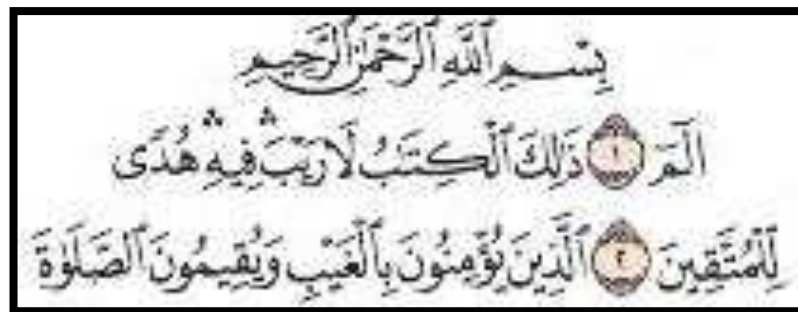 بِسْمِ ٱللَّهِ ٱلرَّحْمَٰنِ ٱلرَّحِيمِ
الٓمٓ ١ ذَٰلِكَ ٱلْكِتَٰبُ لَا رَيْبَ ۛ فِيهِ ۛ هُدًى
لِّلْمُتَّقِينَ ٢ ٱلَّذِينَ يُؤْمِنُونَ بِٱلْغَيْبِ وَيُقِيمُونَ ٱلصَّلَوٰةَ